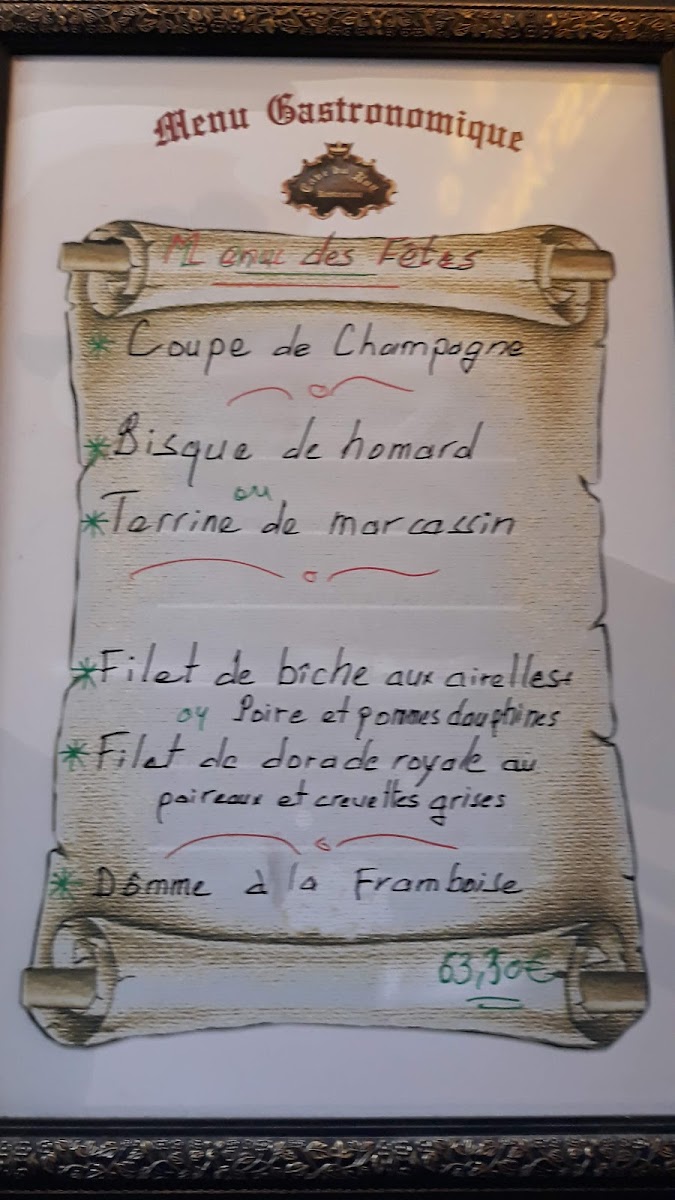 Menu Gastronomique
Menu des Fêtes
* Coupe de Champagne
* Bisque de homard
ou
* Terrine de marcassin
* Filet de biche aux airelles+
ou Poire et pommes dauphines
* Filet de dorade royale au
poireaux et crevettes grises
* Dômme à la Framboise
63,30€